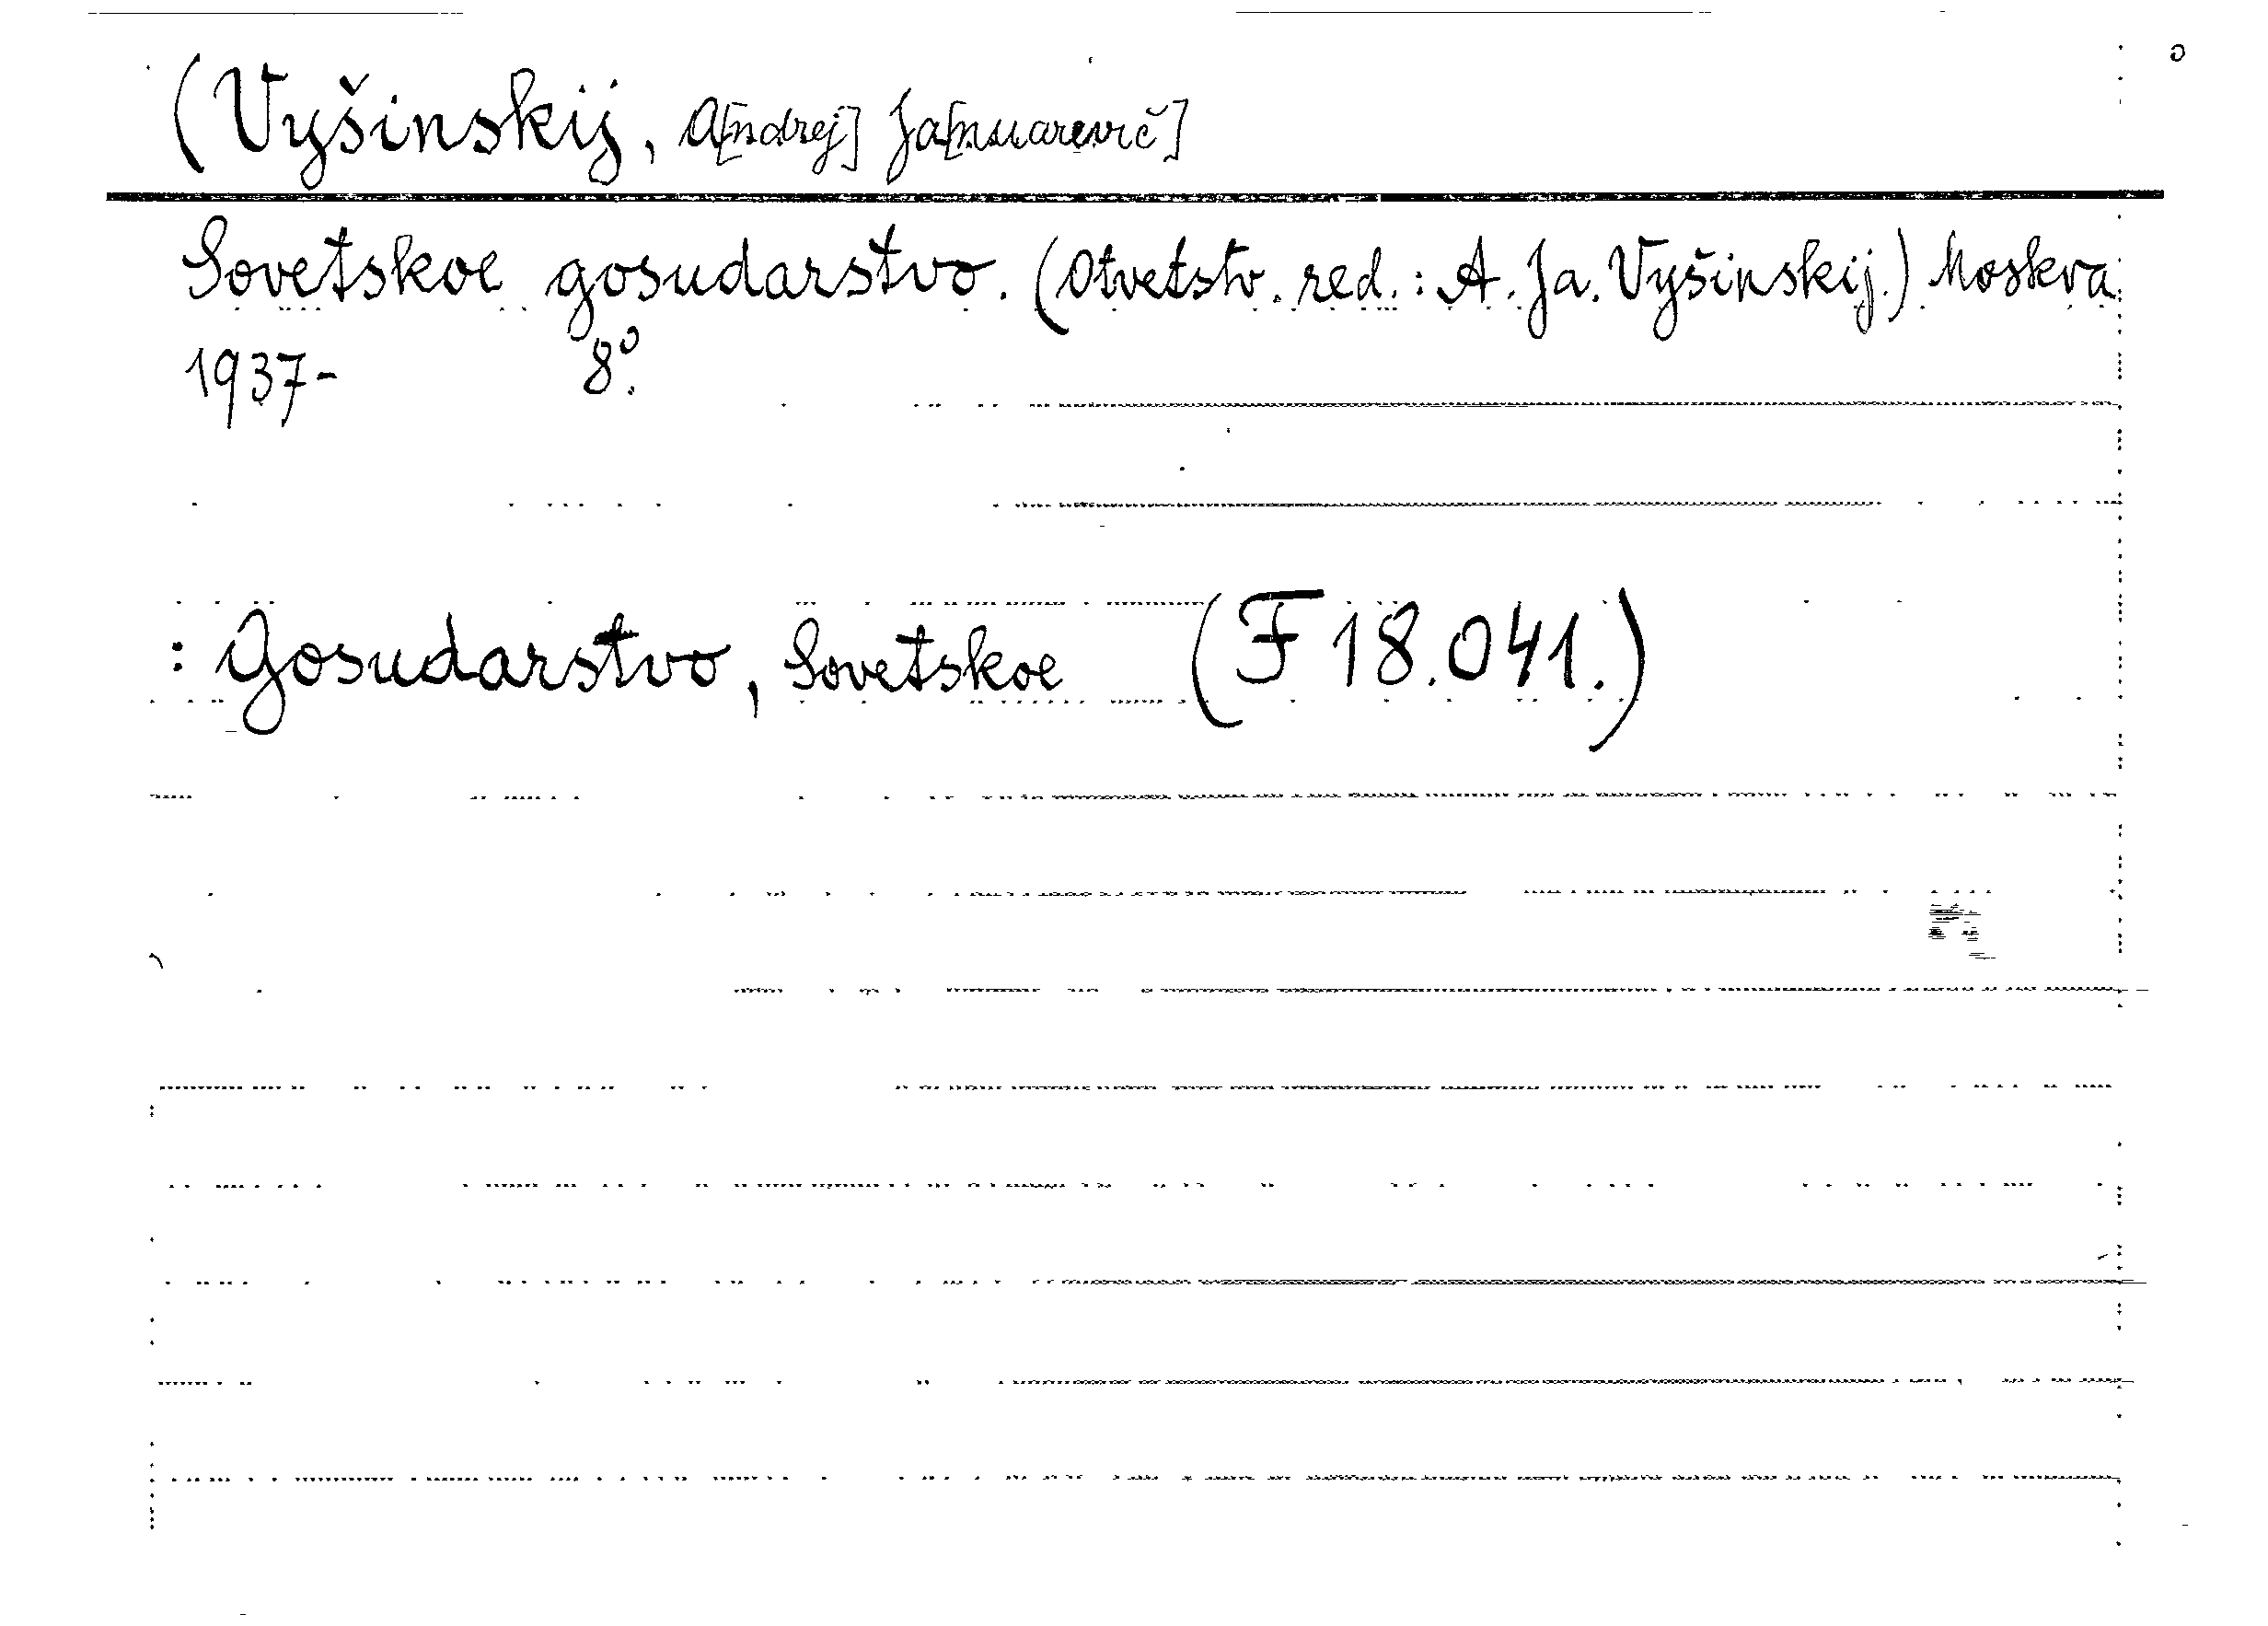 (Vyšinskij, A[ndrej] Ja[nuarevič]
Sovetskoe gosudarstvo. (Otvetstv. red.: A. Ja. Vyšinskij.) Moskva
1937- 8°.
: Gosudarstvo, Sovetskoe (F 18.041.)